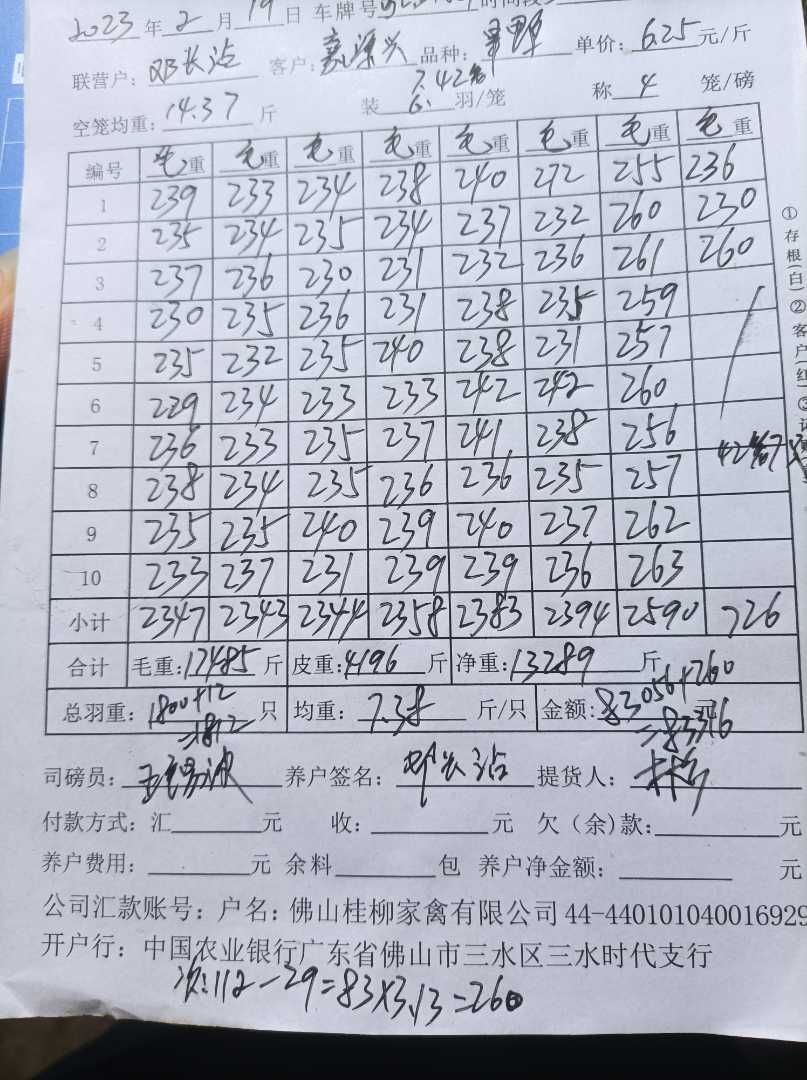 2023 年 2 月 19 日 车牌号
联营户: 邓长沾 客户: 品种: 单价: 6.25 元/斤
空笼均重: 14.37 斤 装 6. 7.42笼 羽/笼 称 4 笼/磅
编号 毛重 毛重 毛重 毛重 毛重 毛重 毛重 毛重
1 239 233 234 238 240 272 255 236
2 235 234 235 234 237 232 260 230
3 237 236 230 231 232 236 261 260
4 230 235 236 231 238 235 259
5 235 232 235 240 238 231 257
6 229 234 233 233 242 242 260
7 236 233 235 237 241 238 256
8 238 234 235 236 236 235 257
9 235 235 240 239 240 237 262
10 233 237 231 239 239 236 263
小计 2347 2343 2344 2358 2383 2394 2590 726
合计 毛重: 17485 斤 皮重: 4196 斤 净重: 13289 斤
总羽重: 1800+12=1812 只 均重: 7.38 斤/只 金额: 83056+260=83346 元
司磅员: 养户签名: 邓长沾 提货人:
付款方式: 汇 元 收: 元 欠(余)款: 元
养户费用: 元 余料 包 养户净金额: 元
公司汇款账号: 户名: 佛山桂柳家禽有限公司 44-440101040016929
开户行: 中国农业银行广东省佛山市三水区三水时代支行
次:112-29=83×3.13=260
①存根(白)②客户(红)③